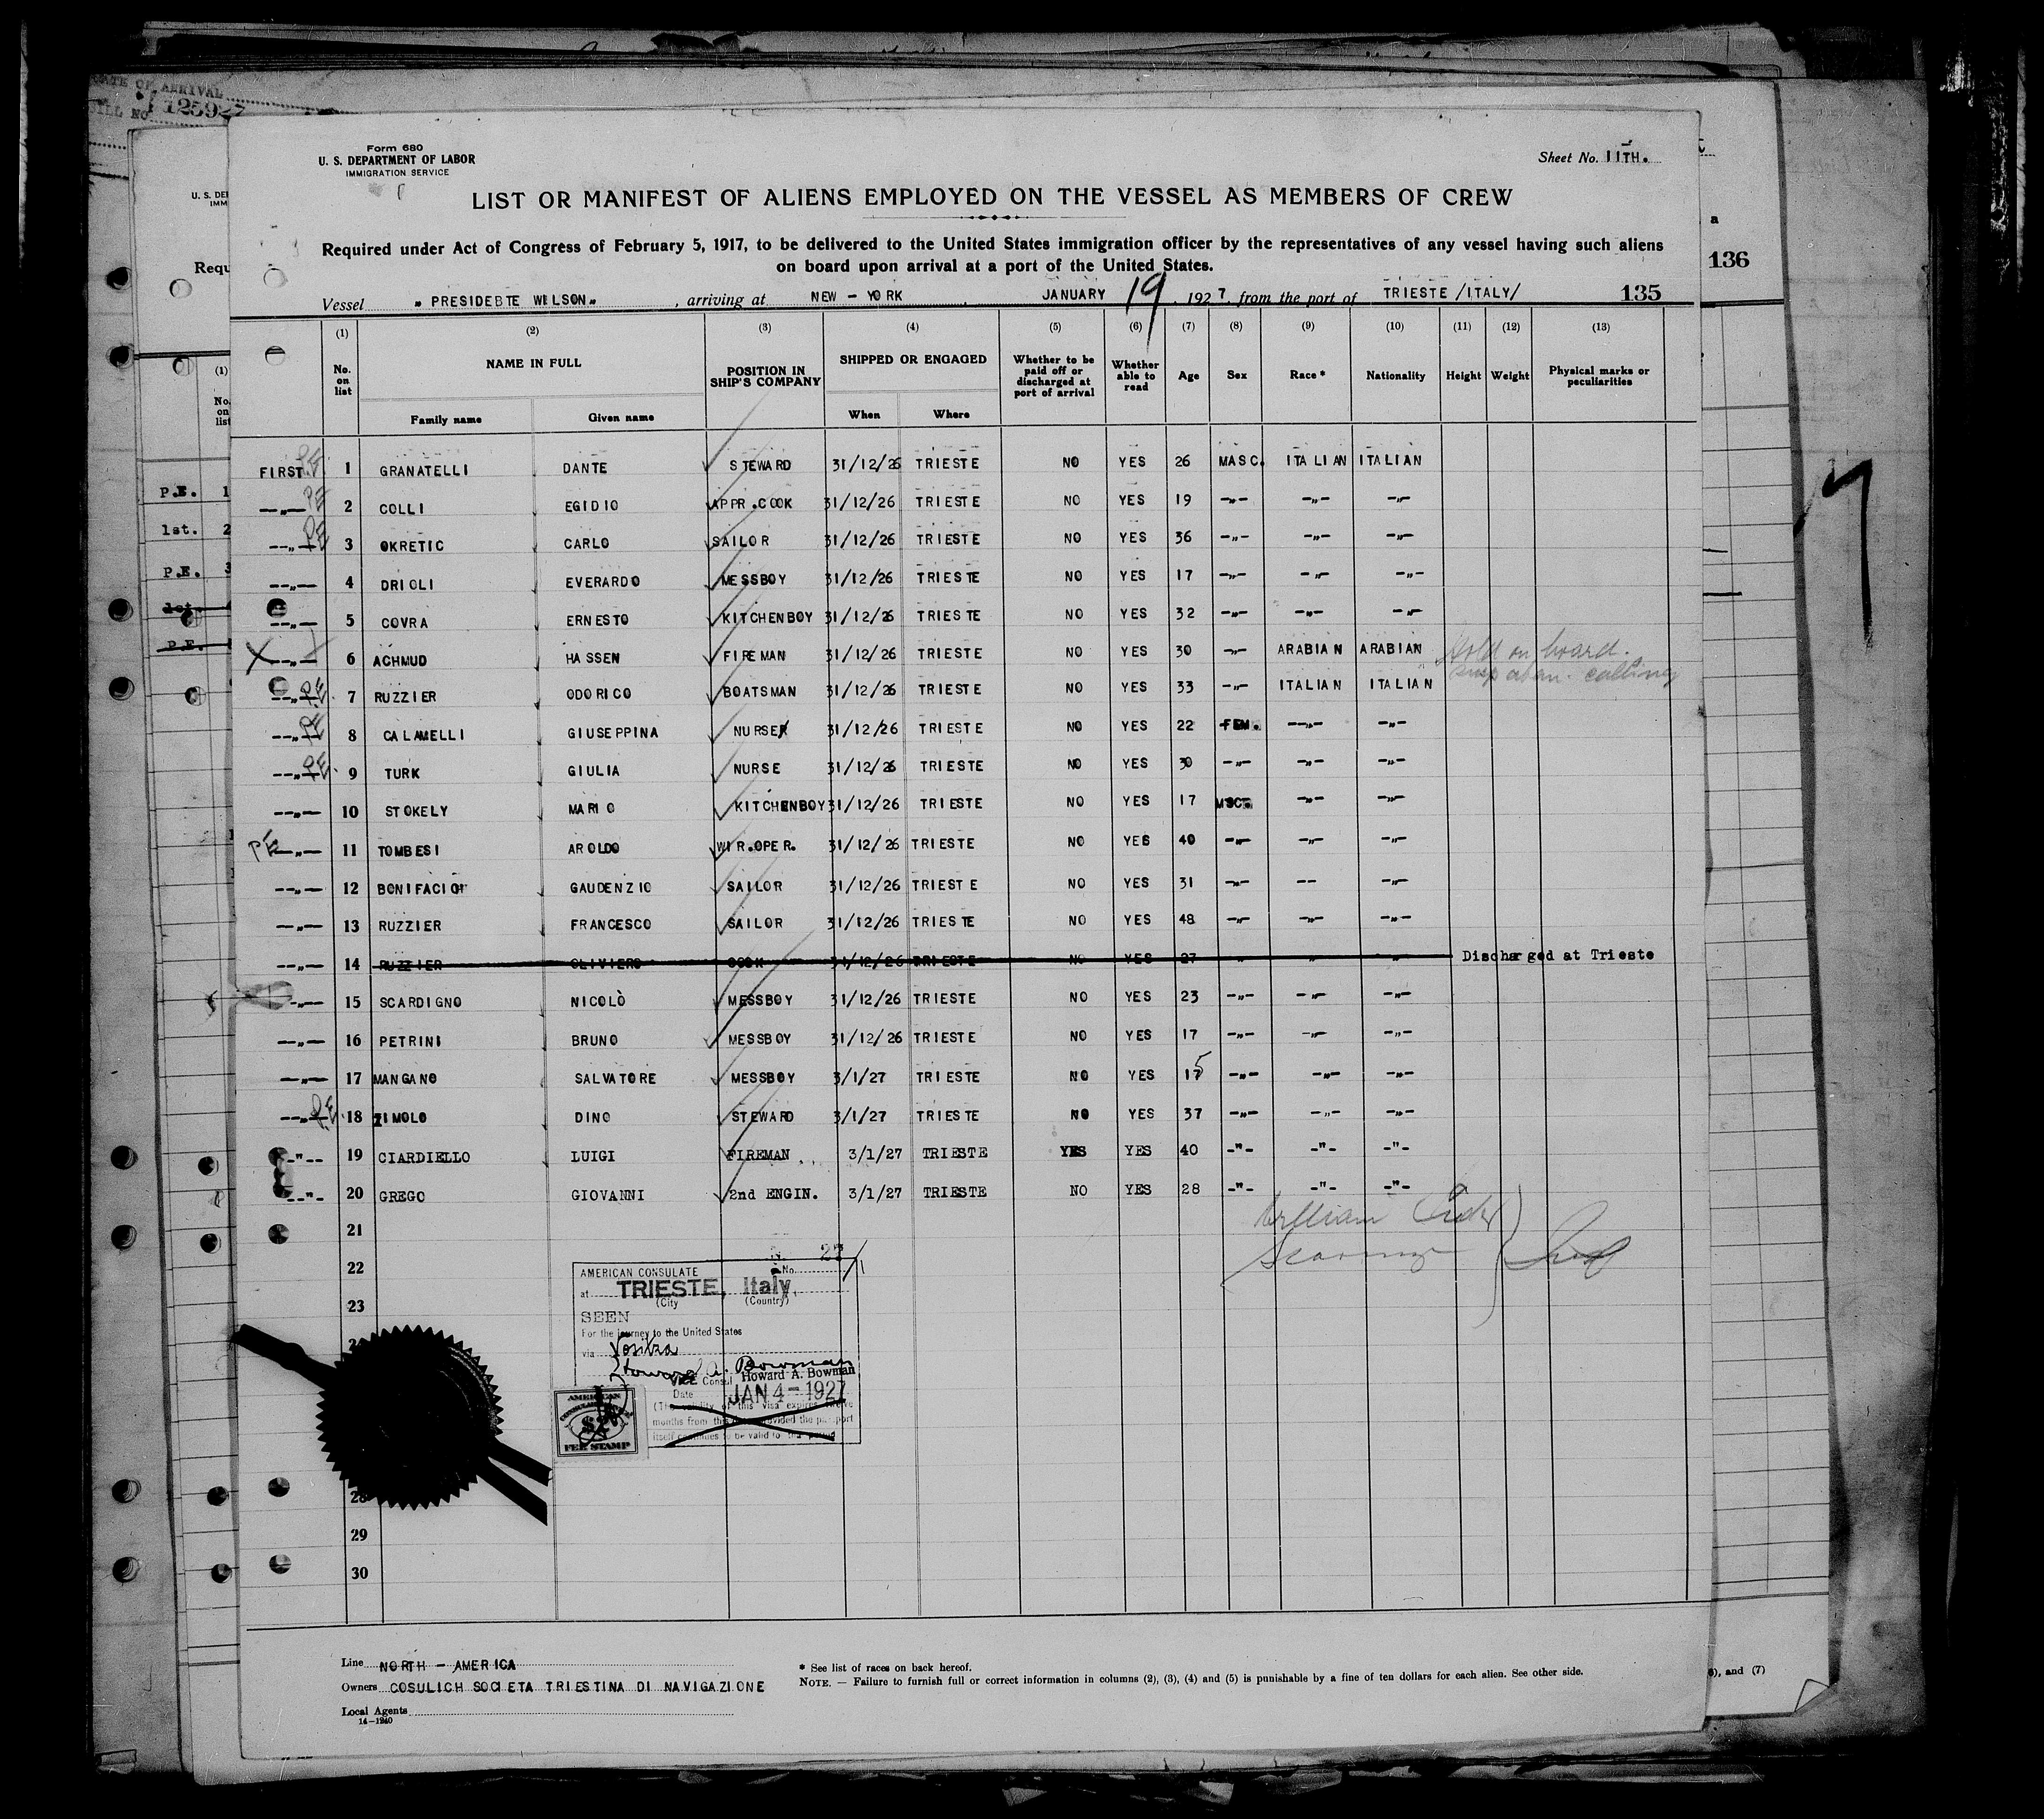 DATE OF ARRIVAL
125927
Form 680
U. S. DEPARTMENT OF LABOR
IMMIGRATION SERVICE
Sheet No. 11TH.
LIST OR MANIFEST OF ALIENS EMPLOYED ON THE VESSEL AS MEMBERS OF CREW
Required under Act of Congress of February 5, 1917, to be delivered to the United States immigration officer by the representatives of any vessel having such aliens
on board upon arrival at a port of the United States.
136
Vessel „ PRESIDEBTE WILSON„ , arriving at NEW - YORK JANUARY 19 , 1927, from the port of TRIESTE /ITALY/ 135
(1) (2) (3) (4) (5) (6) (7) (8) (9) (10) (11) (12) (13)
No. on list NAME IN FULL Family name Given name POSITION IN SHIP'S COMPANY SHIPPED OR ENGAGED When Where Whether to be paid off or discharged at port of arrival Whether able to read Age Sex Race * Nationality Height Weight Physical marks or peculiarities
FIRST PE 1 GRANATELLI DANTE STEWARD 31/12/26 TRIESTE NO YES 26 MASC. ITALIAN ITALIAN
—„— PE 2 COLLI EGIDIO APPR.COOK 31/12/26 TRIESTE NO YES 19 -„- -„- -„-
—„— PE 3 OKRETIC CARLO SAILOR 31/12/26 TRIESTE NO YES 36 -„- -„- -„-
—„— 4 DRIOLI EVERARDO MESSBOY 31/12/26 TRIESTE NO YES 17 -„- -„- -„-
—„— 5 COVRA ERNESTO KITCHENBOY 31/12/26 TRIESTE NO YES 32 -„- -„- -„-
X —„— 6 ACHMUD HASSEN FIREMAN 31/12/26 TRIESTE NO YES 30 -„- ARABIAN ARABIAN Hold on board.
—„— PE 7 RUZZIER ODORICO BOATSMAN 31/12/26 TRIESTE NO YES 33 -„- ITALIAN ITALIAN
—„— PE 8 CALAMELLI GIUSEPPINA NURSE 31/12/26 TRIESTE NO YES 22 FEM. -„- -„-
—„— PE 9 TURK GIULIA NURSE 31/12/26 TRIESTE NO YES 30 -„- -„- -„-
—„— 10 STOKELY MARIO KITCHENBOY 31/12/26 TRIESTE NO YES 17 MSC. -„- -„-
PE —„— 11 TOMBESI AROLDO WIR.OPER. 31/12/26 TRIESTE NO YES 40 -„- -„- -„-
—„— 12 BONIFACIO GAUDENZIO SAILOR 31/12/26 TRIESTE NO YES 31 -„- -- -„-
—„— 13 RUZZIER FRANCESCO SAILOR 31/12/26 TRIESTE NO YES 48 -„- -„- -„-
—„— 14 RUZZIER OLIVIERO COOK 31/12/26 TRIESTE NO YES 27 „ „ „ Discharged at Trieste
—„— 15 SCARDIGNO NICOLÒ MESSBOY 31/12/26 TRIESTE NO YES 23 -„- -„- -„-
—„— 16 PETRINI BRUNO MESSBOY 31/12/26 TRIESTE NO YES 17 -„- -„- -„-
—„— 17 MANGANO SALVATORE MESSBOY 3/1/27 TRIESTE NO YES 15 -„- -„- -„-
—„— PE 18 ZIMOLO DINO STEWARD 3/1/27 TRIESTE NO YES 37 -„- -„- -„-
-"-- 19 CIARDIELLO LUIGI FIREMAN 3/1/27 TRIESTE YES YES 40 -"- -"- -"-
--"- 20 GREGO GIOVANNI 2nd ENGIN. 3/1/27 TRIESTE NO YES 28 -"- -"- -"-
21
22
23
28
29
30
William
AMERICAN CONSULATE No. 27
at TRIESTE, Italy,
(City (Country)
SEEN
For the journey to the United States
via
Howard A. Bowman
Vice Consul Howard A. Bowman
Date JAN 4 - 1927
(The validity of this visa expires twelve
months from this date provided the passport
itself continues to be valid for that period
AMERICAN
CONSULAR
$2
FEE STAMP
Line NORTH - AMERICA
Owners COSULICH SOCIETA TRIESTINA DI NAVIGAZIONE
Local Agents
14—1240
* See list of races on back hereof.
NOTE. — Failure to furnish full or correct information in columns (2), (3), (4) and (5) is punishable by a fine of ten dollars for each alien. See other side.
, and (7)
U. S. DE
IMM
Requ
(1)
No. on list
P.E. 1
1st. 2
P.E. 3
1st.
P.E.